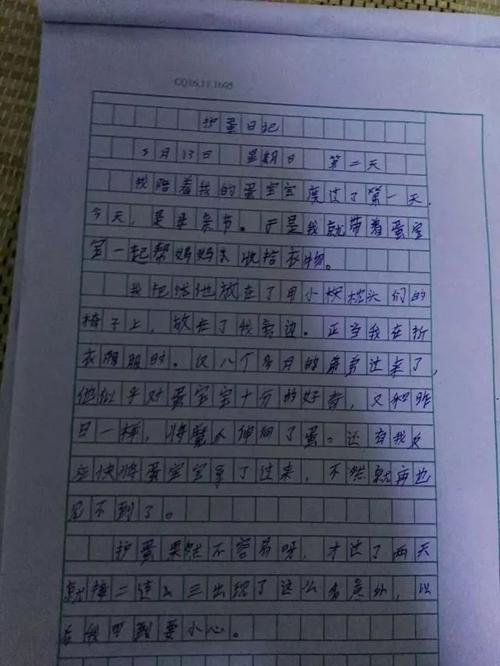 CQ16.11.1605
护蛋日记
5月13日 星期日 第二天
我陪着我的蛋宝宝度过了第一天,
今天,是母亲节。于是我就带着蛋宝
宝一起帮妈妈去收拾衣物。
我把他放在了用小枕头们的
椅子上,放在了我旁边。正当我在折
衣服时。仅八个多月的弟弟过来了,
他似乎对蛋宝宝十分的好奇,又和昨
日一样,将魔爪伸向了蛋。还有我反
应快将蛋宝宝拿了过来,不然就再也
见不到了。
护蛋果然不容易呀,才过了两天
就接二连三出现了这么多意外,以
后我可要小心。